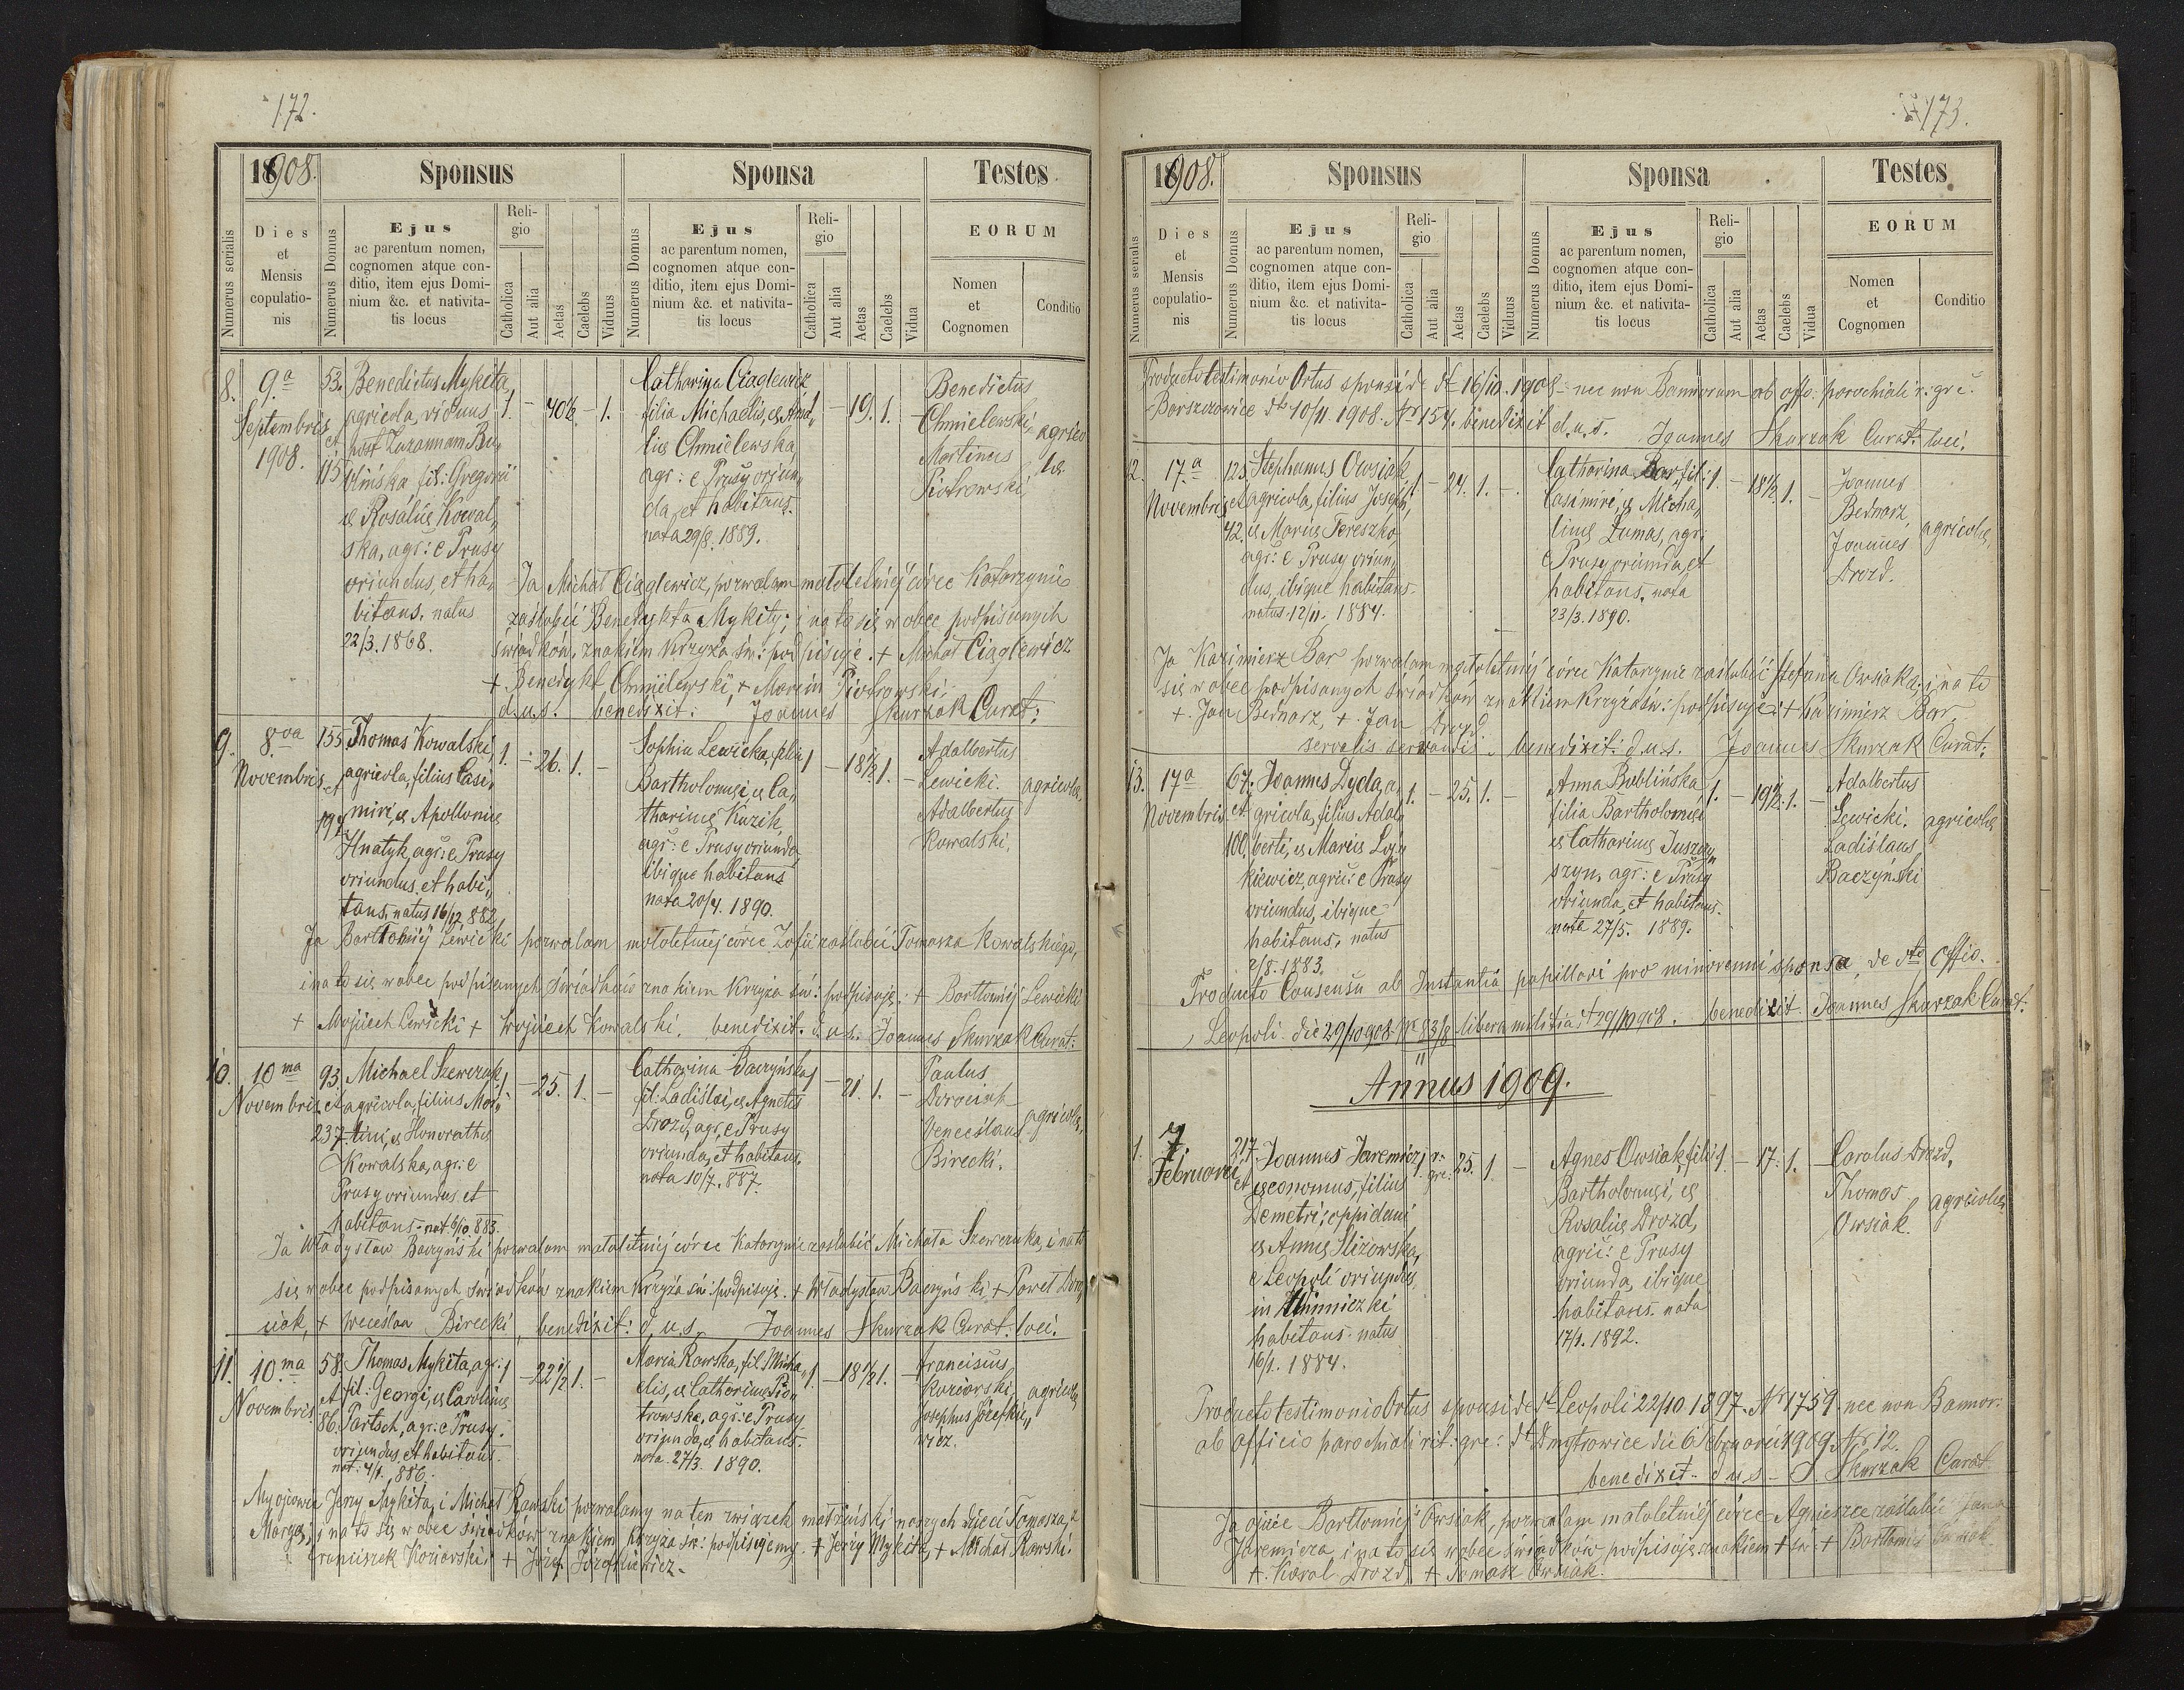 172.
1908.
Sponsus
Sponsa
Testes
Numerus serialis
Dies
et
Mensis
copulatio-
nis
Numerus Domus
Ejus
ac parentum nomen,
cognomen atque con-
ditio, item ejus Domi-
nium &c. et nativita-
tis locus
Reli-
gio
Catholica
Aut alia
Aetas
Caelebs
Viduus
Numerus Domus
Ejus
ac parentum nomen,
cognomen atque con-
ditio, item ejus Domi-
nium &c. et nativita-
tis locus
Reli-
gio
Catholica
Aut alia
Aetas
Caelebs
Vidua
EORUM
Nomen
et
Cognomen
Conditio
8.
9.a
Septembris
1908.
53.
et
115
Benedictus Mykita,
agricola, viduus
post Zuzannam Bu„
blińska, fil: Gregorii
& Rosaliæ Kowal„
ska, agr: e Prusy
oriundus, et ha„
bitans. natus
22/3. 1868.
1. – 40½ – 1.
Catharina Ciaglewicz
filia Michaelis, & Ama„
liæ Chmielewska,
agr: e Prusy oriun„
da, et habitans.
nata 29/8. 1889.
– 19. 1.
Benedictus
Chmielewski,
Martinus
Piotrowski
agrico
læ
Ja Michał Ciąglewicz, pozwalam małoletniéj córce Katarzynie
zaślubić Benedykta Mykitę; i na to się w obec podpisanych
świadków, znakiem Krzyża św: podpisuję. + Michał Ciąglewicz
+ Benedykt Chmielewski, + Marcin Piotrowski;
d.u.s. benedixit: Joannes Skurzak Curat:
9.
8.va
Novembris
155
et
197
Thomas Kowalski,
agricola, filius Casi„
miri, & Apolloniæ
Hnatyk, agr: e Prusy
oriundus, et habi„
tans, natus 16/12 882
1. – 26. 1. –
Sophia Lewicka, filia
Bartholomæi & Ca„
tharinæ Kuzik,
agr: e Prusy oriunda,
ibique habitans
nata 20/4. 1890.
1 – 18½ 1. –
Adalbertus
Lewicki.
Adalbertus
Kowalski.
agricolæ
Ja Bartłomiéj Lewicki pozwalam małoletniéj córce Zofii zaślubić Tomasza Kowalskiego,
i na to się w obec podpisanych świadków znakiem Krzyża św: podpisuję. + Bartłomiéj Lewicki
+ Wojciech Lewicki + Wojciech Kowalski. benedixit. d.u.s. Joannes Skurzak Curat:
10.
10 ma
Novembris
93.
et
237
Michael Szewczuk,
agricola, filius Mar„
tini, & Honorathæ
Kowalska, agr: e
Prusy oriundus et
habitans. nat 6/10. 883.
1 – 25. 1. –
Catharina Baczyńska
fil: Ladislai, & Agnetis
Drozd, agr: e Prusy
oriunda, et habitans.
nata 10/7. 887.
1 – 21. 1. –
Paulus
Dorociak
Venceslaus
Birecki.
agricolæ.
Ja Władysław Baczyński pozwalam małoletniéj córce Katarzynie zaślubić Michała Szewczuka, i na to
się w obec podpisanych świadków znakiem Krzyża św: podpisuję. + Władysław Baczyński, + Paweł Doro„
ciak, + Wecesław Birecki, benedixit: d.u.s. Joannes Skurzak Curat: loci.
11.
10.ma
Novembris
58.
et
86.
Thomas Mykita, agr:
fil: Georgi, & Carolinæ
Partsch, agr: e Prusy
oriundus, et habitans.
nat: 4/1. 886.
1 – 22½ 1. –
Maria Rawska, fil. Micha„
elis, & Catharinæ Pio„
trowska, agr: e Prusy
oriunda, & habitans.
nata 27/3. 1890.
1. – 18½ 1. –
Franciscus
Koziorski,
Josephus Józefkie„
wicz.
agricolæ
My ojcowie Jerzy Mykita, i Michał Rawski pozwalamy na ten związek małżeński naszych dzieci Tomasza, z
Maryą, i na to się w obec świadków znakiem Krzyża św: podpisujemy. + Jerzy Mykita, + Michał Rawski.
Franciszek Koziorski + Józef Józefkiewicz.
173.
1908.
Sponsus
Sponsa
Testes
Numerus serialis
Dies
et
Mensis
copulatio-
nis
Numerus Domus
Ejus
ac parentum nomen,
cognomen atque con-
ditio, item ejus Domi-
nium &c. et nativita-
tis locus
Reli-
gio
Catholica
Aut alia
Aetas
Caelebs
Viduus
Numerus Domus
Ejus
ac parentum nomen,
cognomen atque con-
ditio, item ejus Domi-
nium &c. et nativita-
tis locus
Reli-
gio
Catholica
Aut alia
Aetas
Caelebs
Vidua
EORUM
Nomen
et
Cognomen
Conditio
Producto testimonio Ortus sponsi de dt 16/10. 1908 – nec non Bannorum ab offo: parochiali r: gre.
Barszczowice dto 10/11 1908. Nr 154. benedixit d.u.s. Joannes Skurzak Curat: loci.
12.
17.a
Novembris
125
et
42.
Stephanus Owsiak,
agricola, filius Joseph,
& Mariæ Tereszko,
agr: e Prusy oriun„
dus, ibique habitans.
natus 12/11. 1884.
1. – 24. 1. –
Catharina Bar, fil:
Casimiri, & Micha„
linæ Dumas, agr:
e Prusy oriunda, et
habitans. nata
23/3. 1890.
1. – 18½ 1. –
Joannes
Bednarz,
Joannes
Drozd.
agricolæ,
Ja Kazimierz Bar pozwalam małoletniéj córce Katarzynie zaślubić Stefana Owsiaka; i na to
się w obec podpisanych świadków znakiem Krzyża św: podpisuję: + Kazimierz Bar,
+ Jan Bednarz, + Jan Drozd.
servatis servandis, benedixit: d.u.s. Joannes Skurzak Curat:
13.
17a
Novembris.
67.
et
100.
Joannes Dyda, a„
gricola, filius Adal„
berti, & Mariæ Łoj„
kiewicz, agric: e Prusy
oriundus, ibique
habitans. natus
2/8. 1883.
1. – 25. 1. –
Anna Bublińska,
filia Bartholomæi
& Catharinæ Juszczy„
szyn, agr: e Prusy
oriunda, et habitans.
nata 27/5. 1889.
1. – 19½ 1. –
Adalbertus
Lewicki.
Ladislaus
Baczyński
agricolæ
Producto Consensu ab Instantia pupillari pro minorenni sponsa, de dto Offic.
Leopoli die 29/10 908 Nr 83/8 libera militia dt 29/10 908. benedixit. Joannes Skurzak Curat:
Annus 1909.
1.
7.
Februarii
217.
et
Joannes Jaremicz,
œconomus, filius
Demetri, oppidani
& Annæ Slizowska,
e Leopoli oriundus,
in Winniczki
habitans. natus
16/1. 1884.
1. r. gre: 25. 1 –
Agnes Owsiak, filia
Bartholomæi, &
Rosaliæ Drozd,
agric: e Prusy
oriunda, ibique
habitans. nata
17/1. 1892.
1. – 17. 1. –
Carolus Drozd,
Thomas
Owsiak.
agricolæ
Producto testimonio Ortus sponsi de dt Leopoli 22/10 1897. Nr 1759. nec non Bannor:
ab officio parochiali rit: gre: dt Dmytrowice die 6 Februarii 1909 Nr 12.
benedixit – d.u.s – J. Skurzak Curat
Ja ojciec Bartłomiéj Owsiak, pozwalam małoletniéj córce Agnieszce zaślubić Jana
Jaremicza, i na to się w obec świadków podpisuję znakiem + św: + Bartłomiéj Owsiak
+ Karol Drozd, + Tomasz Owsiak.